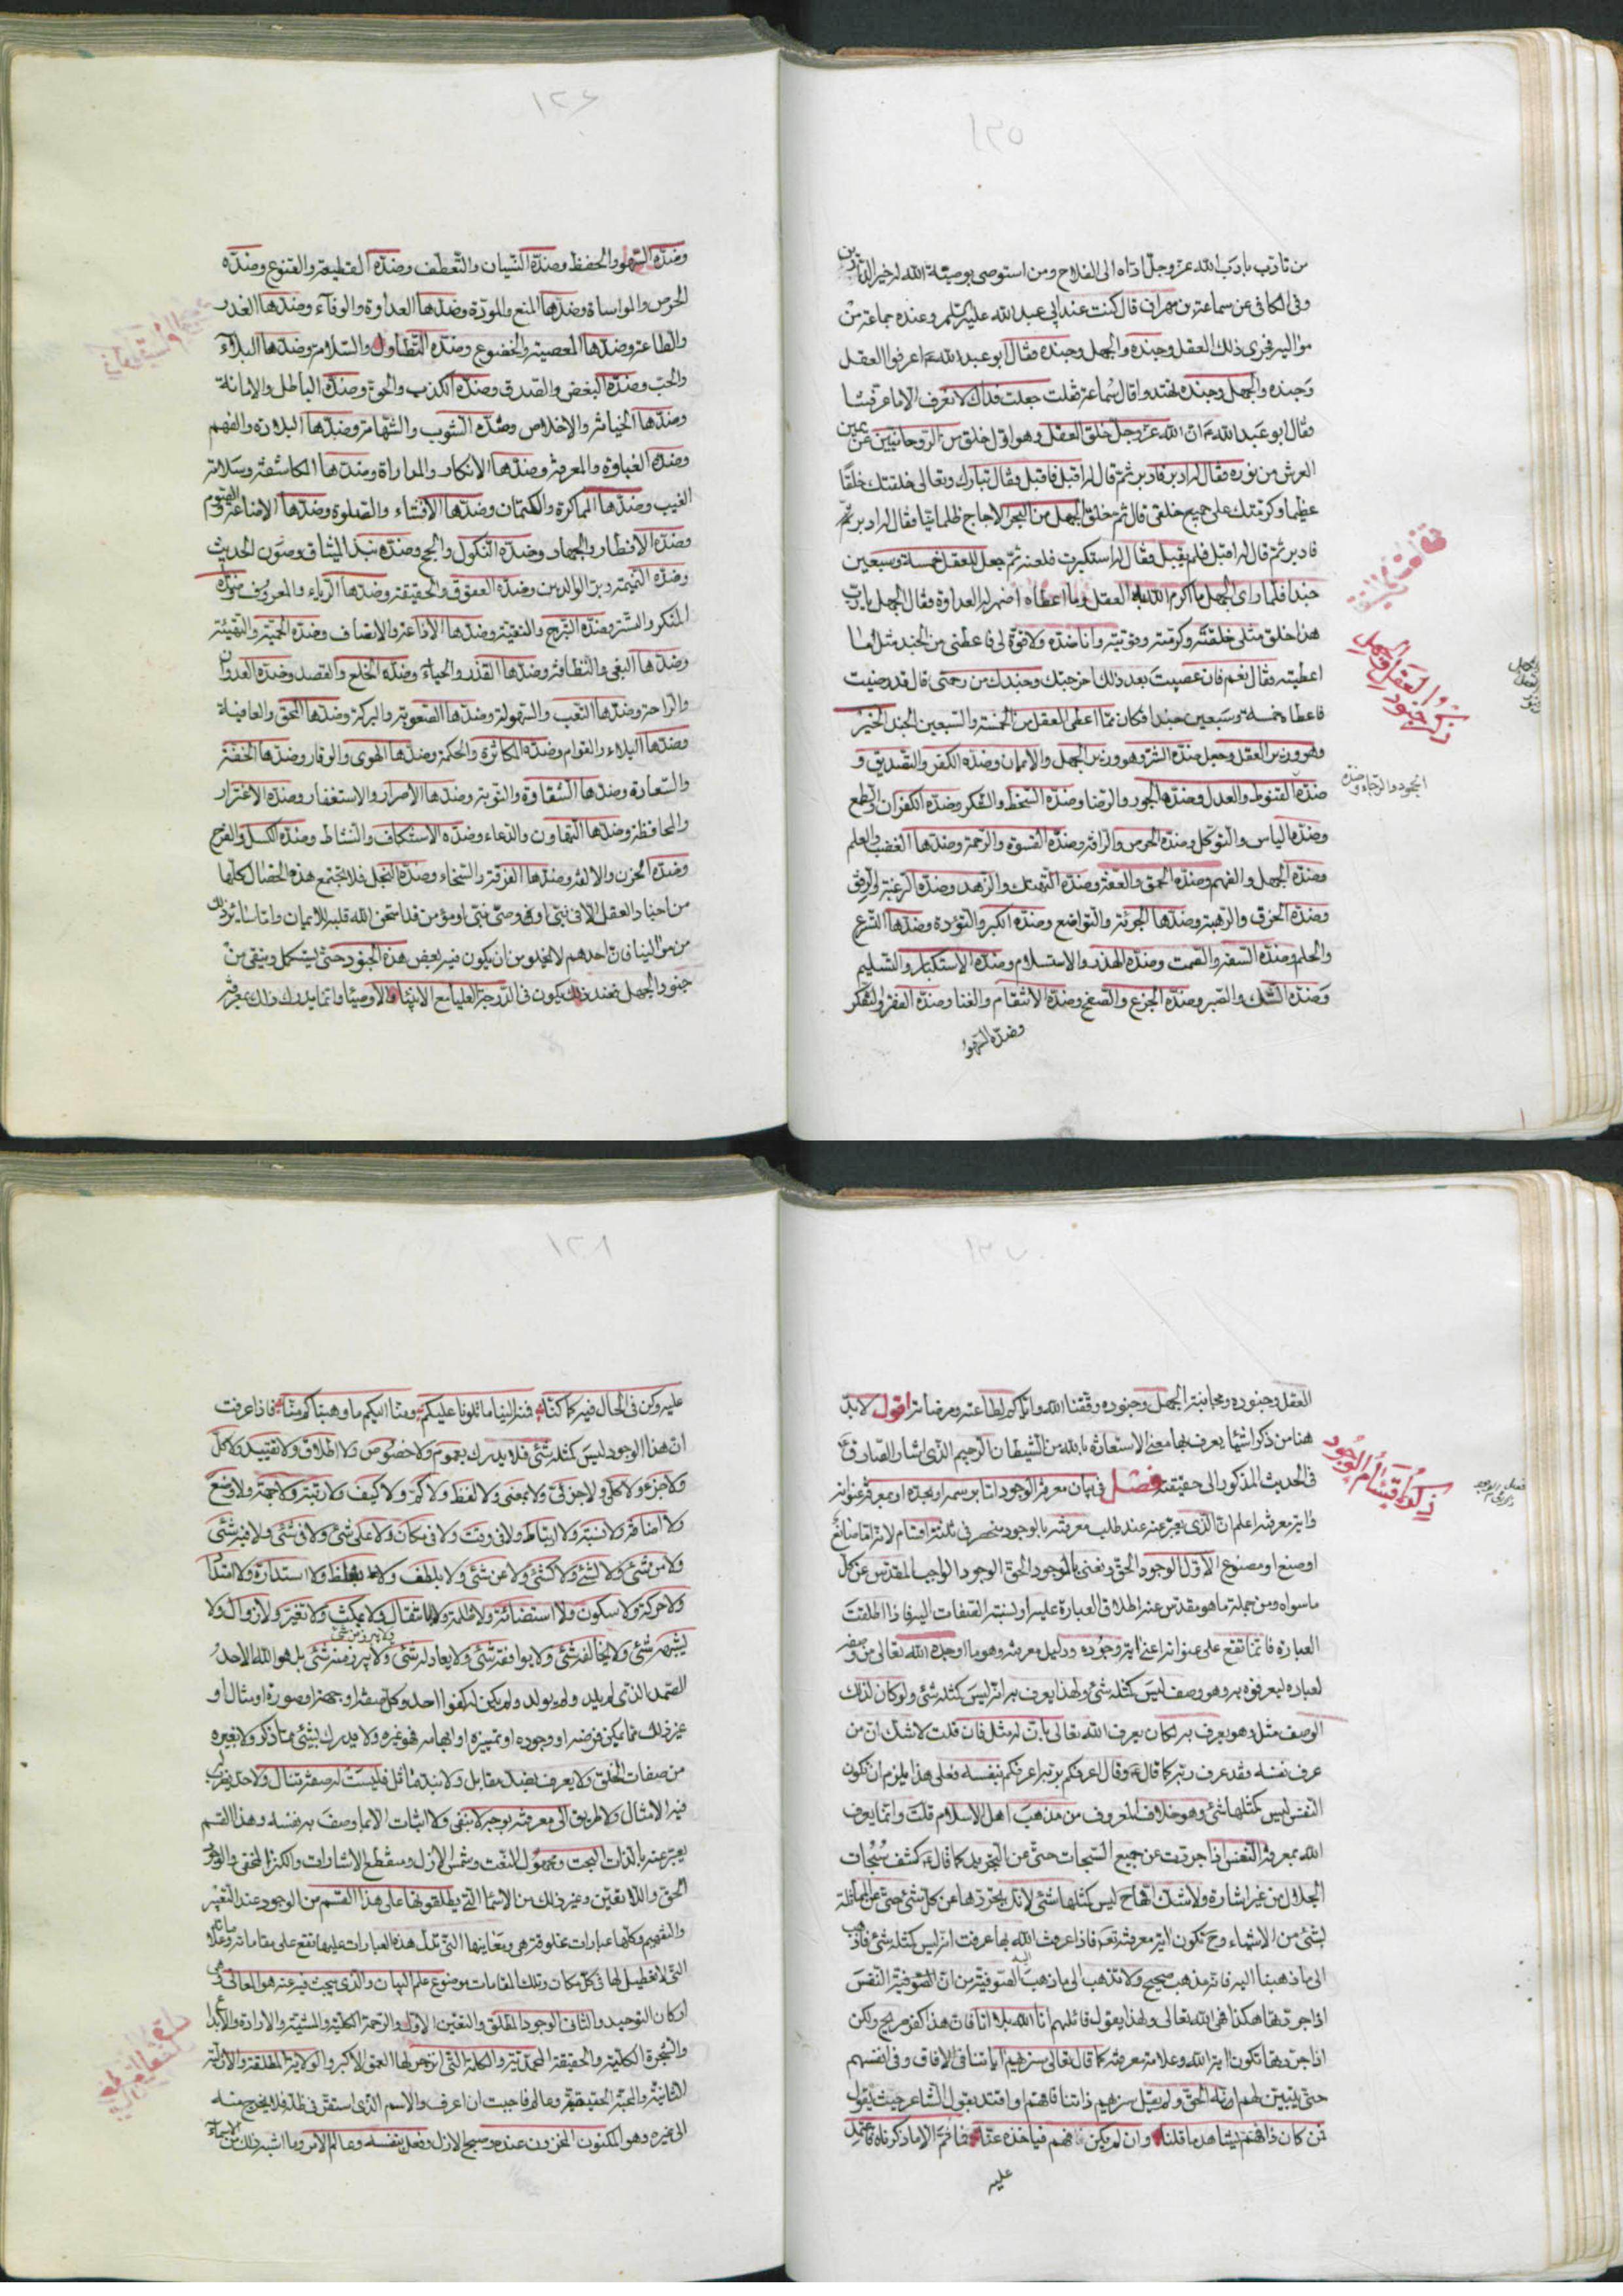 ١٢٥
من تأدب بادب الله عز وجل اداه الى الفلاح ومن استوصى بوصية الله له خير الدارين
وفى الكافى عن سماعة بن مهران قال كنت عند ابى عبد الله عليه السلم وعنده جماعة من
مواليه فجرى ذلك العقل وجنده والجهل وجنده فقال ابو عبد الله ع اعرفوا العقل
وجنده والجهل وجنده تهتدوا قال سماعة فقلت جعلت فداك لا نعرف الا ما عرفتنا
فقال ابو عبد الله ع ان الله عز وجل خلق العقل وهو اول خلق من الروحانيين عن يمين
العرش من نوره فقال له ادبر فادبر ثم قال له اقبل فاقبل فقال تبارك وتعالى خلقتك خلقًا
عظيما وكرمتك على جميع خلقى قال ثم خلق الجهل من البحر الاجاج ظلمانيا فقال له ادبر
فادبر ثم قال له اقبل فلم يقبل فقال له استكبرت فلعنه ثم جعل للعقل خمسة وسبعين
جندا فلما راى الجهل ما اكرم الله به العقل وما اعطاه اضمر له العداوة فقال الجهل يا رب
هذا خلق مثلى خلقته وكرمته وقويته وانا ضده ولا قوة لى فاعطنى من الجند مثل ما
اعطيته فقال نعم فان عصيت بعد ذلك اخرجتك وجندك من رحمتى قال قد رضيت
فاعطاه خمسة وسبعين جندا فكان مما اعطى العقل من الخمسة والسبعين الجند الخير
وهو وزير العقل وجعل ضده الشر وهو وزير الجهل والايمان وضده الكفر والتصديق و
ضده القنوط والعدل وضده الجور والرضا وضده السخط والشكر وضده الكفران والطمع
وضده الياس والتوكل وضده الحرص والرافة وضده القسوة والرحمة وضدها الغضب والعلم
وضده الجهل والفهم وضده الحمق والعفة وضده التهتك والزهد وضده الرغبة والرفق
وضده الخرق والرهبة وضدها الجرئة والتواضع وضده الكبر والتؤدة وضدها التسرع
والحلم وضده السفه والصمت وضده الهذر والاستسلام وضده الاستكبار والتسليم
وضده الشك والصبر وضده الجزع والصفح وضده الانتقام والغنا وضده الفقر والتفكر
وضده السهو
ذكر جنود العقل والجهل
الجحود والرجاء وضده
١٢٦
وضده السهو والحفظ وضده النسيان والتعطف وضده القطيعة والقنوع وضده
الحرص والمواساة وضدها المنع والمودة وضدها العداوة والوفاء وضدها الغدر
والطاعة وضدها المعصية والخضوع وضده التطاول والسلامة وضدها البلاء
والحب وضده البغض والصدق وضده الكذب والحق وضده الباطل والامانة
وضدها الخيانة والاخلاص وضده الشوب والشهامة وضدها البلادة والفهم
وضده الغباوة والمعرفة وضدها الانكار والمداراة وضدها المكاشفة وسلامة
الغيب وضدها المماكرة والكتمان وضدها الافشاء والصلوة وضدها الاضاعة والصوم
وضده الافطار والجهاد وضده النكول والحج وضده نبذ الميثاق وصون الحديث
وضده النميمة وبر الوالدين وضده العقوق والحقيقة وضدها الرياء والمعروف وضده
المنكر والستر وضده التبرج والتقية وضدها الاذاعة والانصاف وضده الحمية والتهيئة
وضدها البغى والنظافة وضدها القذر والحياء وضده الخلع والقصد وضده العدوان
والراحة وضدها التعب والسهولة وضدها الصعوبة والبركة وضدها المحق والعافية
وضدها البلاء والقوام وضده المكاثرة والحكمة وضدها الهوى والوقار وضدها الخفة
والسعادة وضدها الشقاوة والتوبة وضدها الاصرار والاستغفار وضده الاغترار
والمحافظة وضدها التهاون والدعاء وضده الاستنكاف والنشاط وضده الكسل والفرح
وضده الحزن والالفة وضدها الفرقة والسخاء وضده البخل فلا يجتمع هذه الخصال كلها
من اجناد العقل الا فى نبى او وصى نبى او مؤمن قد امتحن الله قلبه للايمان واما سائر ذلك
من موالينا فان احدهم لا يخلو من ان يكون فيه بعض هذه الجنود حتى يستكمل وينقى من
جنود الجهل فعند ذلك يكون فى الدرجة العليا مع الانبياء والاوصياء وانما يدرك ذلك بمعرفة
١٢٧
العقل وجنوده ومجانبة الجهل وجنوده وفقنا الله واياكم لطاعته ومرضاته اقول لا بد
هنا من ذكر اشياء يعرف بها معنى الاستعاذة بالله من الشيطان الرجيم الذى اشار الصادق ع
فى الحديث المذكور الى حقيقته فصل فى بيان معرفة الوجود اما برسمه او بحده او بمعرفة عنوانه
واية معرفته اعلم ان الذى يعبر عنه عند طلب معرفته بالوجود منحصر فى ثلثة اقسام لانه اما صانع
او صنع او مصنوع الاول الوجود الحق ونعنى بالوجود الحق الوجود الواجب المقدس عن كل
ما سواه ومن جملة ما هو مقدس عنه اطلاق العبارة عليه او نسبة الصفات اليه فاذا اطلقت
العبارة فانما تقع على عنوانه اعنى اية وجوده ودليل معرفته وهو ما اوجده الله تعالى من وصفه
لعباده ليعرفوه به وهو وصف ليس كمثله شئ ولهذا يعرف به انه ليس كمثله شئ ولو كان لذلك
الوصف مثل وهو يعرف به لكان يعرف الله تعالى بان له مثل فان قلت لا شك ان من
عرف نفسه فقد عرف ربه كما قال ع وقال اعرفكم بربه اعرفكم بنفسه فعلى هذا يلزم ان تكون
النفس ليس كمثلها شئ وهو خلاف المعروف من مذهب اهل الاسلام قلت وانما يعرف
الله بمعرفة النفس اذا جردت عن جميع السبحات حتى عن التجريد كما قال ع كشف سبحات
الجلال من غير اشارة ولا شك انها ح ليس كمثلها شئ لانك تجردها عن كل شئ حتى عن المماثلة
لشئ من الاشياء وح تكون اية معرفته تع فاذا عرفت الله بها عرفت انه ليس كمثله شئ فاذهب
الى ما ذهبنا اليه فانه مذهب صحيح ولا تذهب الى ما ذهبت اليه الصوفية من ان النفس
اذا جردتها هكذا هى الله تعالى ولهذا يقول قائلهم انا الله بلا انا فان هذا كفر صريح ولكن
اذا جردتها تكون اية الله وعلامة معرفته كما قال تعالى سنريهم اياتنا فى الافاق وفى انفسهم
حتى يتبين لهم انه الحق ولم يقل سنريهم ذاتنا فافهم واقتد بقول الشاعر حيث يقول
من كان ذا فهم يشاهد ما قلنا وان لم يكن فهم فياخذه عنا فما ثم الا ما ذكرناه فاعتمد
عليه
ذكر اقسام الوجود
١٢٨
عليه وكن فى الحال فيه كما كنا فمنه الينا ما تلونا عليكم ومنا اليكم ما وهبناكم منا فاذا عرفت
ان هذا الوجود ليس كمثله شئ فلا يدرك بعموم ولا خصوص ولا اطلاق ولا تقييد ولا كل
ولا جزء ولا كلى ولا جزئى ولا بمعنى ولا لفظ ولا كم ولا كيف ولا رتبة ولا جهة ولا وضع
ولا اضافة ولا نسبة ولا ارتباط ولا فى وقت ولا فى مكان ولا على شئ ولا فى شئ ولا فيه شئ
ولا من شئ ولا لشئ ولا كشئ ولا عن شئ ولا بلطف ولا بغلظ ولا استدارة ولا امتداد
ولا حركة ولا سكون ولا استضائة ولا ظلمة ولا انتقال ولا مكث ولا تغير ولا زوال ولا
يشبهه شئ ولا يخالفه شئ ولا يوافقه شئ ولا يعادله شئ ولا يبرز منه شئ بل هو الله الاحد
ولا يبرز من شئ
الصمد الذى لم يلد ولم يولد ولم يكن له كفوا احد وكل صفة او جهة او صورة او مثال او
غير ذلك مما يمكن فرضه او وجوده او تمييزه او ابهامه فهو غيره ولا يدرك بشئ مما ذكر ولا بغيره
من صفات الخلق ولا يعرف بضد مقابل ولا بند مماثل فليست له صفة تنال ولا حد يضرب
فيه الامثال ولا طريق الى معرفته بوجه لا بنفى ولا اثبات الا بما وصف به نفسه وهذا القسم
يعبر عنه بالذات البحت ومجهول النعت وشمس الازل ومنقطع الاشارات والكنز المخفى والوجود
الحق واللا تعين وغير ذلك من الاسماء التى يطلقونها على هذا القسم من الوجود عند التعبير
والتفهيم وكلها عبارات مخلوقة هى ومعانيها التى تدل هذه العبارات عليها تقع على مقاماته وعلاماته
التى لا تعطيل لها فى كل مكان وتلك المقامات موضوع علم البيان والذى يبحث فيه عنه هو المعانى وهى
اركان التوحيد والثانى الوجود المطلق والتعين الاول والرحمة الكلية والمشية والارادة والابداع
والشجرة الكلية والحقيقة المحمدية والكلمة التى انزجر لها العمق الاكبر والولاية المطلقة والازلية
الثانية والمحبة الحقيقية وعالم فاحببت ان اعرف والاسم الذى استقر فى ظله فلا يخرج منه
الى غيره وهو المكنون المخزون عنده وصبح الازل وفعل بنفسه وعالم الامر وما اشبه ذلك من الاسماء